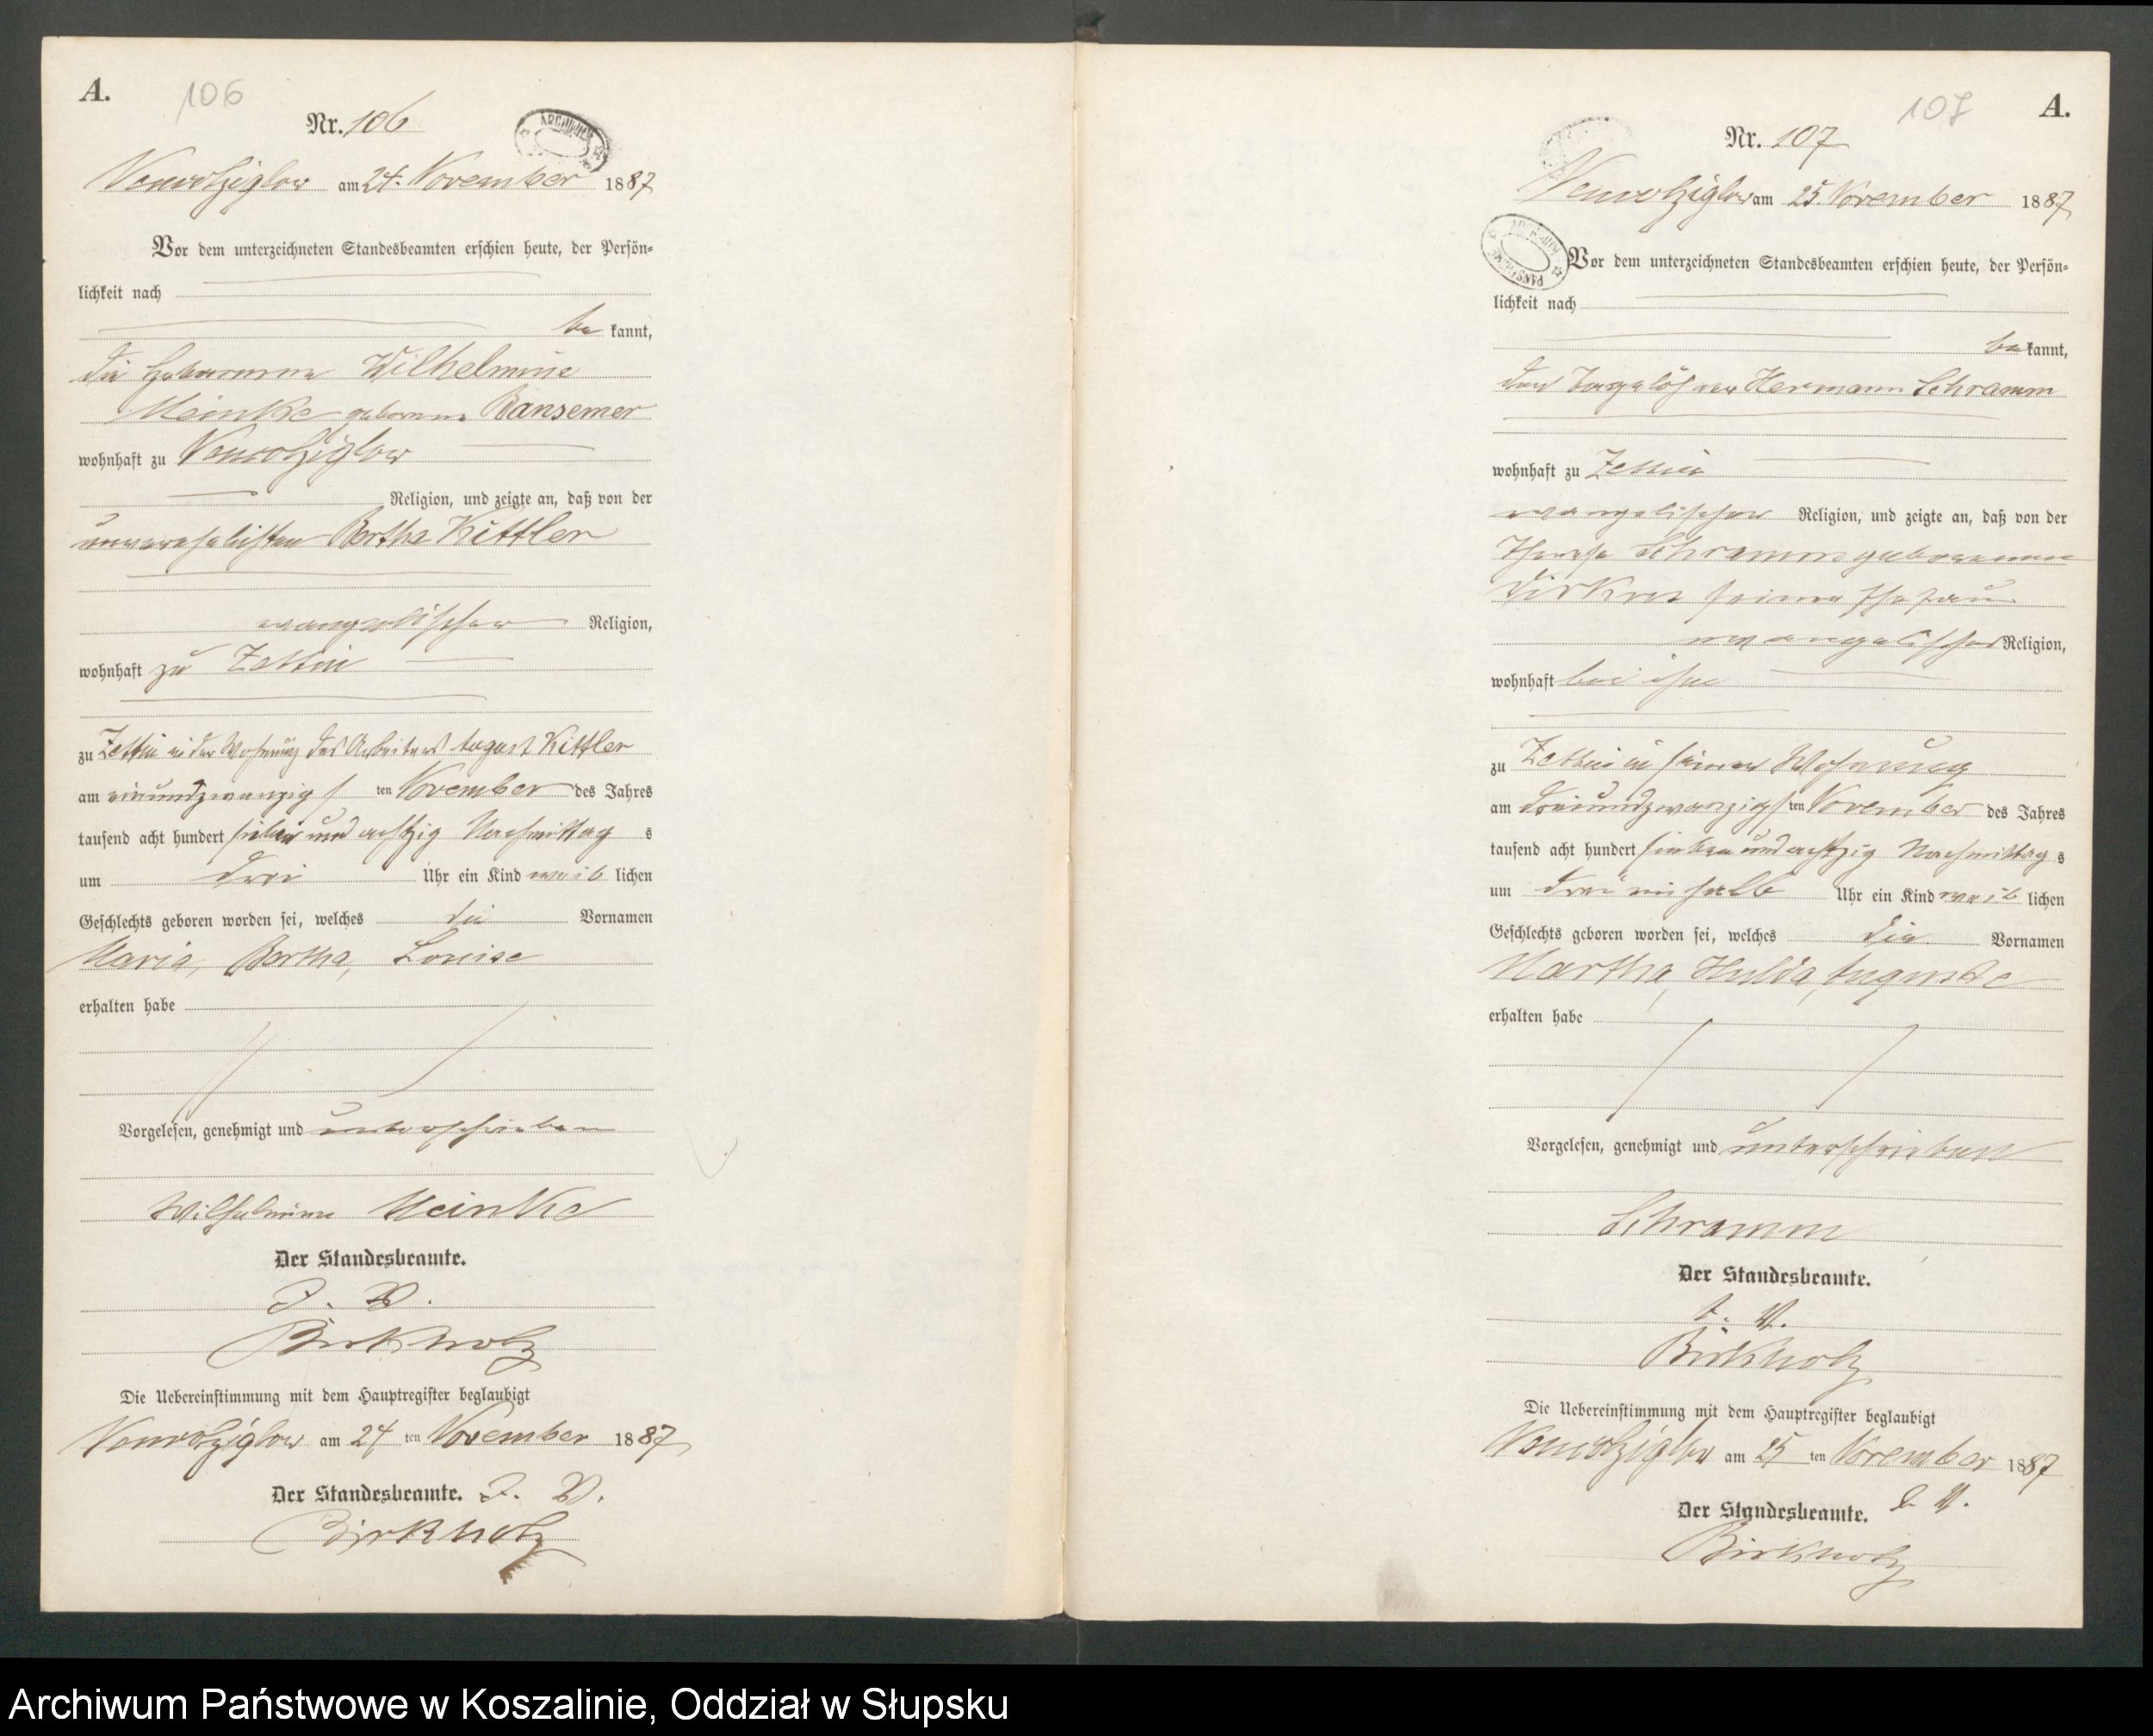 A.
106
Nr. 106
ARCHIWUM
am 24. November 1887
Vor dem unterzeichneten Standesbeamten erschien heute, der Persön-
lichkeit nach
be kannt,
die Hebamme Wilhelmine
Meinke geborene Ransemer
wohnhaft zu
Religion, und zeigte an, daß von der
unverehelichten Bertha Kittler
evangelischer Religion,
wohnhaft zu Zettin
zu Zettin in der Wohnung des Arbeiters August Kittler
am einundzwanzigs ten November des Jahres
tausend acht hundert sieben und achtzig Nachmittag s
um drei Uhr ein Kind weib lichen
Geschlechts geboren worden sei, welches die Vornamen
Maria, Bertha, Louise
erhalten habe
Vorgelesen, genehmigt und unterschrieben
Wilhelmine Meinke
Der Standesbeamte.
J. V.
Birkholz
Die Uebereinstimmung mit dem Hauptregister beglaubigt
am 24 ten November 1887
Der Standesbeamte. J. V.
Birkholz
107
A.
Nr. 107
am 25. November 1887
Vor dem unterzeichneten Standesbeamten erschien heute, der Persön-
lichkeit nach
be kannt,
der Tagelöhner Hermann Schramm
wohnhaft zu Zettin
evangelischer Religion, und zeigte an, daß von der
Schramm geborenen
seiner Ehefrau
evangelischer Religion,
wohnhaft bei ihm
zu Zettin in seiner Wohnung
am dreiundzwanzigs ten November des Jahres
tausend acht hundert sieben und achtzig Nachmittag s
um drei ein halb Uhr ein Kind weib lichen
Geschlechts geboren worden sei, welches die Vornamen
Martha, Hulda, Auguste
erhalten habe
Vorgelesen, genehmigt und unterschrieben
Schramm
Der Standesbeamte.
J. V.
Birkholz
Die Uebereinstimmung mit dem Hauptregister beglaubigt
am 25 ten November 1887
Der Standesbeamte. J. V.
Birkholz
Archiwum Państwowe w Koszalinie, Oddział w Słupsku